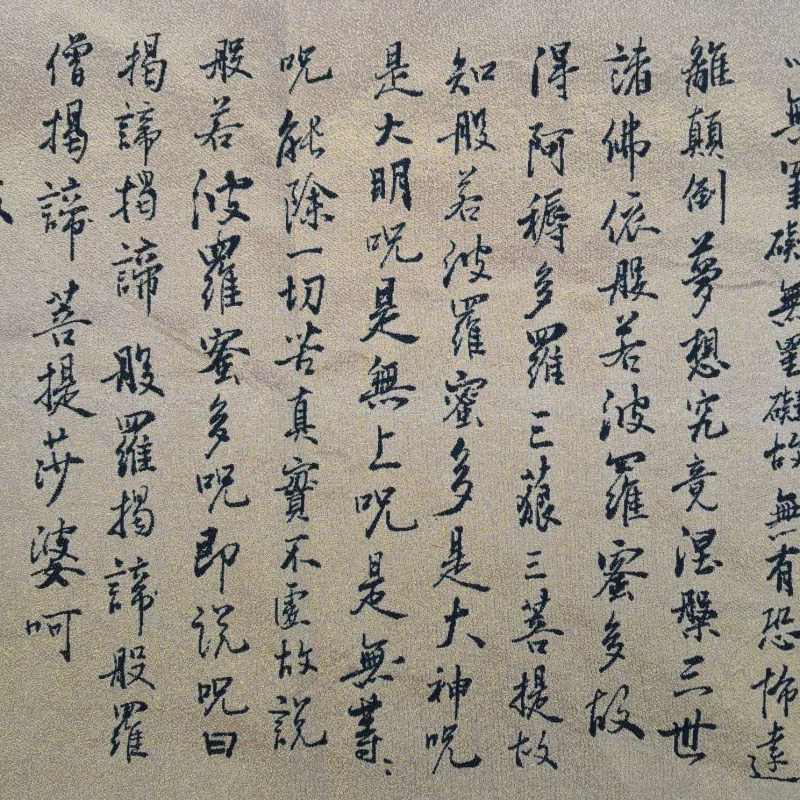 無罣礙無罣礙故無有恐怖遠
離顛倒夢想究竟涅槃三世
諸佛依般若波羅蜜多故
得阿耨多羅三藐三菩提故
知般若波羅蜜多是大神咒
是大明咒是無上咒是無等:
呪能除一切苦真實不虛故說
般若波羅蜜多呪即说呪曰
揭諦揭諦般羅揭諦般羅
僧揭諦菩提莎婆呵